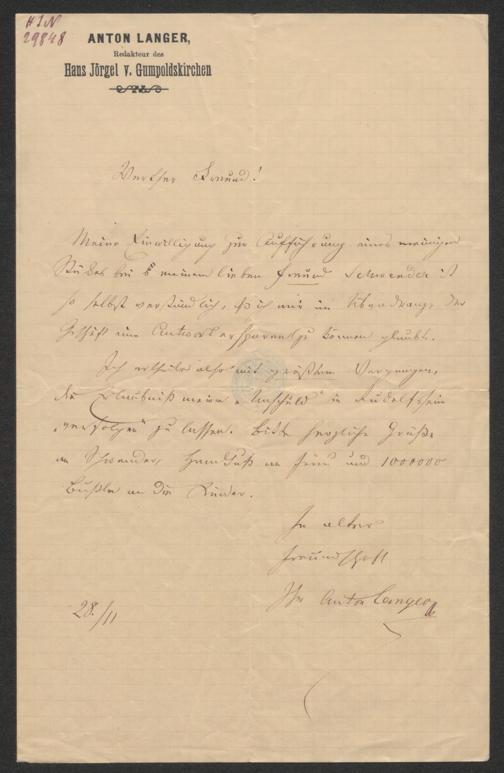 HIN
29848
ANTON LANGER,
Redakteur des
Hans Jörgel v. Gumpoldskirchen
Werther Freund!
Meine Einwilligung zur Aufführung eines meinigen
Stückes bei meinem lieben Freund Schwender ist
so selbst verständlich, ich mir im der
Geschäfte eine Antwort ersparen zu können glaubte.
Ich ertheile also mit größtem Vergnügen,
die Erlaubniß meine "Unschuld" in Rudolfsheim
"verfolgen" zu lassen. Bitte herzliche Grüße
an Schwender, Handkuß an und 1000000
Bußln an die Kinder.
In alter
Freundschaft
Ihr Anton Langer
28./11